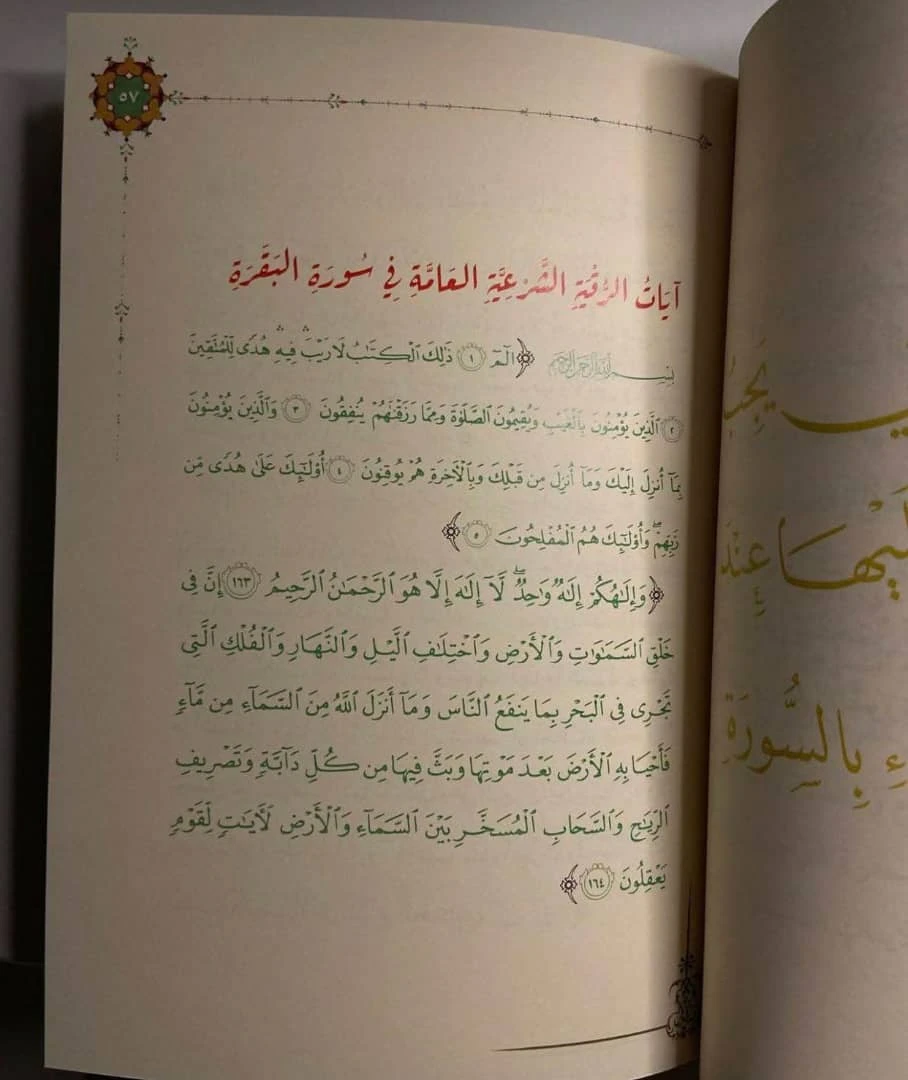 ٥٧
آيَاتُ الرُّقْيَةِ الشَّرْعِيَّةِ العَامَّةِ فِي سُورَةِ البَقَرَةِ
بِسْمِ اللَّهِ الرَّحْمَٰنِ الرَّحِيمِ ﴿الٓمٓ ١ ذَٰلِكَ ٱلْكِتَٰبُ لَا رَيْبَۛ فِيهِۛ هُدًى لِّلْمُتَّقِينَ
٢ ٱلَّذِينَ يُؤْمِنُونَ بِٱلْغَيْبِ وَيُقِيمُونَ ٱلصَّلَوٰةَ وَمِمَّا رَزَقْنَٰهُمْ يُنفِقُونَ ٣ وَٱلَّذِينَ يُؤْمِنُونَ
بِمَآ أُنزِلَ إِلَيْكَ وَمَآ أُنزِلَ مِن قَبْلِكَ وَبِٱلْءَاخِرَةِ هُمْ يُوقِنُونَ ٤ أُو۟لَٰٓئِكَ عَلَىٰ هُدًى مِّن
رَّبِّهِمْۖ وَأُو۟لَٰٓئِكَ هُمُ ٱلْمُفْلِحُونَ ٥﴾
﴿وَإِلَٰهُكُمْ إِلَٰهٌ وَٰحِدٌۖ لَّآ إِلَٰهَ إِلَّا هُوَ ٱلرَّحْمَٰنُ ٱلرَّحِيمُ ١٦٣ إِنَّ فِى
خَلْقِ ٱلسَّمَٰوَٰتِ وَٱلْأَرْضِ وَٱخْتِلَٰفِ ٱلَّيْلِ وَٱلنَّهَارِ وَٱلْفُلْكِ ٱلَّتِى
تَجْرِى فِى ٱلْبَحْرِ بِمَا يَنفَعُ ٱلنَّاسَ وَمَآ أَنزَلَ ٱللَّهُ مِنَ ٱلسَّمَآءِ مِن مَّآءٍ
فَأَحْيَا بِهِ ٱلْأَرْضَ بَعْدَ مَوْتِهَا وَبَثَّ فِيهَا مِن كُلِّ دَآبَّةٍ وَتَصْرِيفِ
ٱلرِّيَٰحِ وَٱلسَّحَابِ ٱلْمُسَخَّرِ بَيْنَ ٱلسَّمَآءِ وَٱلْأَرْضِ لَءَايَٰتٍ لِّقَوْمٍ
يَعْقِلُونَ ١٦٤﴾
عِنْدَ
بِالسُّورَةِ